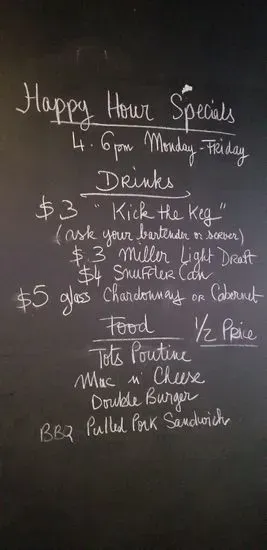 Happy Hour Specials
4-6pm Monday-Friday
Drinks
$3 "Kick the Keg"
(ask your bartender or server)
$3 Miller Light Draft
$4 Snuffler Can
$5 glass Chardonnay or Cabernet
Food 1/2 Price
Tots Poutine
Mac n' Cheese
Double Burger
BBQ Pulled Pork Sandwich